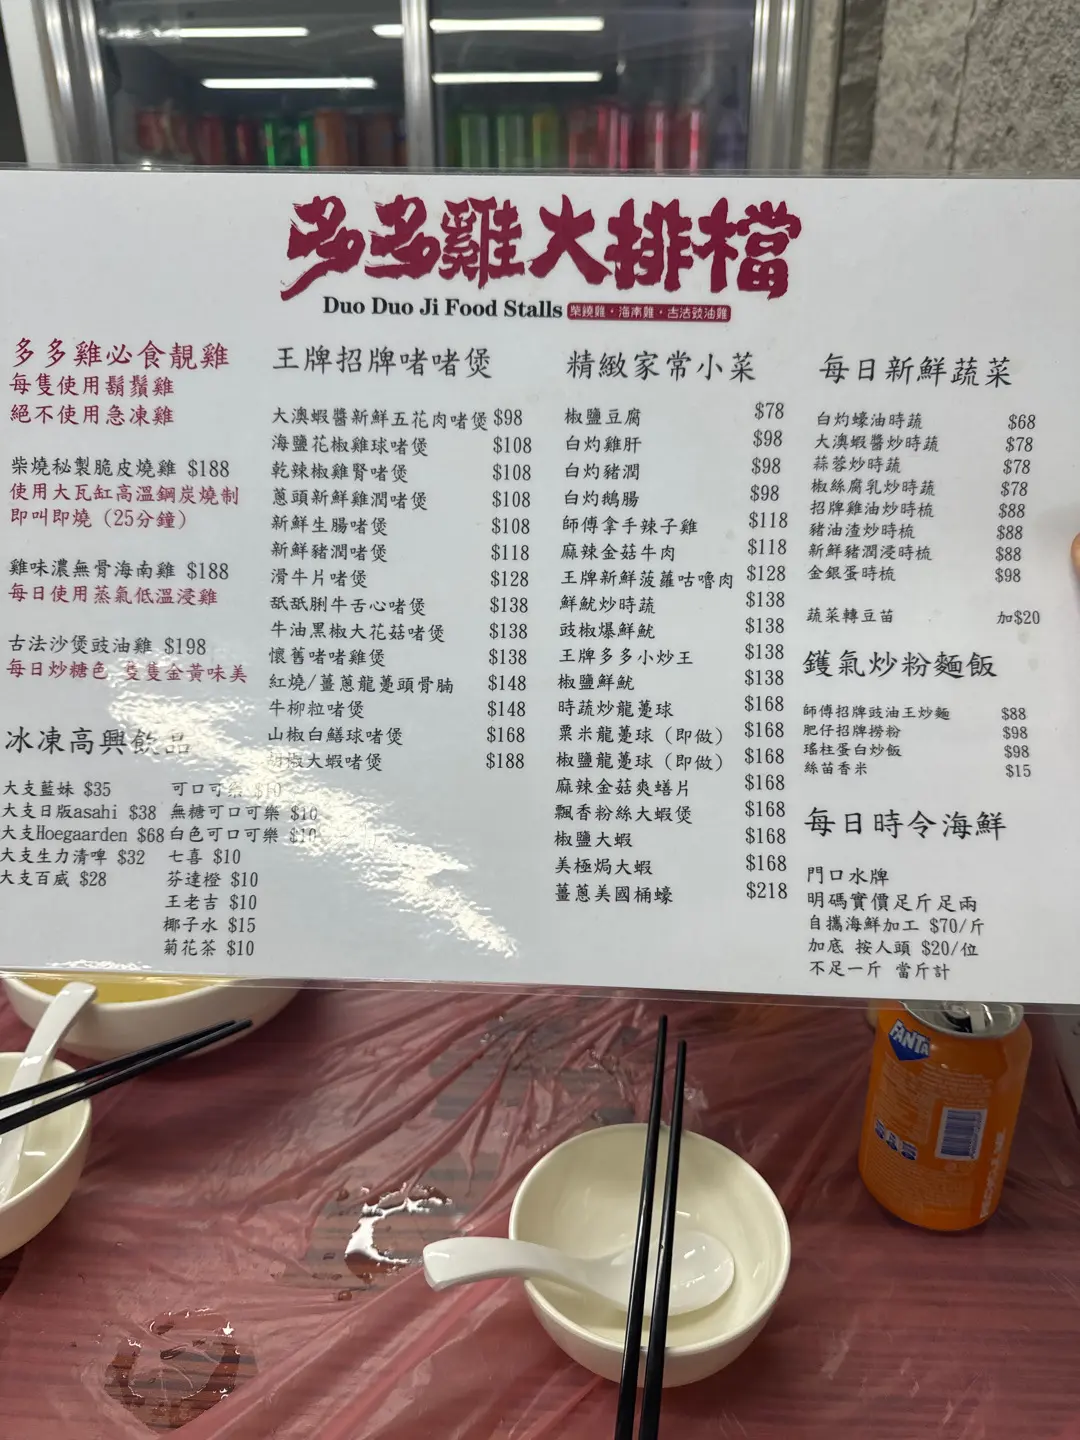 多多雞大排檔
Duo Duo Ji Food Stalls 柴燒雞・海南雞・古法豉油雞
多多雞必食靚雞
每隻使用鬍鬚雞
絕不使用急凍雞
柴燒秘製脆皮燒雞 $188
使用大瓦缸高溫鋼炭燒制
即叫即燒 (25分鐘)
雞味濃無骨海南雞 $188
每日使用蒸氣低溫浸雞
古法沙煲豉油雞 $198
每日炒糖色 隻隻金黃味美
冰凍高興飲品
大支藍妹 $35
大支日版asahi $38
大支Hoegaarden $68
大支生力清啤 $32
大支百威 $28
可口可樂 $10
無糖可口可樂 $10
白色可口可樂 $10
七喜 $10
芬達橙 $10
王老吉 $10
椰子水 $15
菊花茶 $10
王牌招牌啫啫煲
大澳蝦醬新鮮五花肉啫煲 $98
海鹽花椒雞球啫煲 $108
乾辣椒雞腎啫煲 $108
蔥頭新鮮雞潤啫煲 $108
新鮮生腸啫煲 $108
新鮮豬潤啫煲 $118
滑牛片啫煲 $128
舐舐脷牛舌心啫煲 $138
牛油黑椒大花菇啫煲 $138
懷舊啫啫雞煲 $138
紅燒/薑蔥龍躉頭骨腩 $148
牛柳粒啫煲 $148
山椒白鱔球啫煲 $168
胡椒大蝦啫煲 $188
精緻家常小菜
椒鹽豆腐 $78
白灼雞肝 $98
白灼豬潤 $98
白灼鵝腸 $98
師傅拿手辣子雞 $118
麻辣金菇牛肉 $118
王牌新鮮菠蘿咕嚕肉 $128
鮮魷炒時蔬 $138
豉椒爆鮮魷 $138
王牌多多小炒王 $138
椒鹽鮮魷 $138
時蔬炒龍躉球 $168
粟米龍躉球 (即做) $168
椒鹽龍躉球 (即做) $168
麻辣金菇爽蟮片 $168
飄香粉絲大蝦煲 $168
椒鹽大蝦 $168
美極焗大蝦 $168
薑蔥美國桶蠔 $218
每日新鮮蔬菜
白灼蠔油時蔬 $68
大澳蝦醬炒時蔬 $78
蒜蓉炒時蔬 $78
椒絲腐乳炒時蔬 $78
招牌雞油炒時梳 $88
豬油渣炒時梳 $88
新鮮豬潤浸時梳 $88
金銀蛋時梳 $98
蔬菜轉豆苗 加$20
鑊氣炒粉麵飯
師傅招牌豉油王炒麵 $88
肥仔招牌撈粉 $98
瑤柱蛋白炒飯 $98
絲苗香米 $15
每日時令海鮮
門口水牌
明碼實價足斤足兩
自攜海鮮加工 $70/斤
加底 按人頭 $20/位
不足一斤 當斤計
FANTA